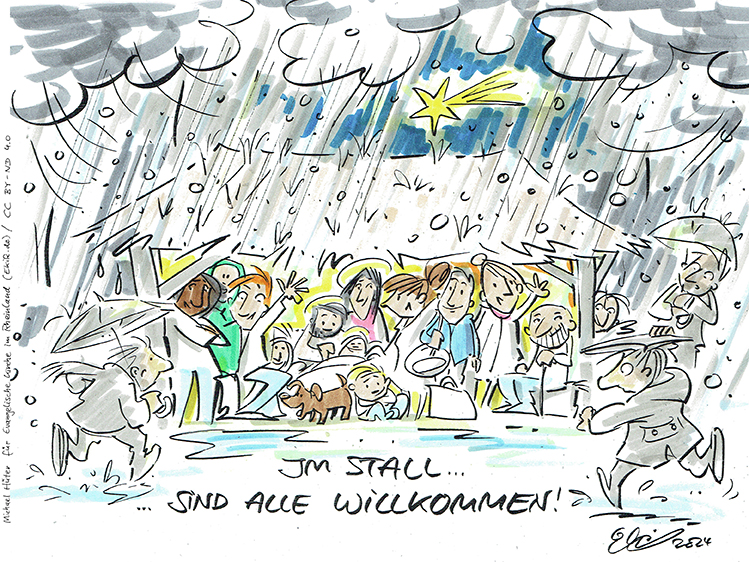 JM STALL...
... SIND ALLE WILLKOMMEN!
2024
Michael Hüter für Evangelische Kirche im Rheinland (EKiR.de) / CC BY-ND 4.0